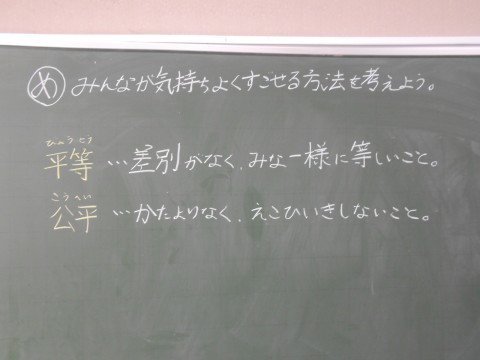 め みんなが気持ちよくすごせる方法を考えよう。
びょうどう
平等…差別がなく、みな一様に等しいこと。
こうへい
公平…かたよりなく、えこひいきしないこと。